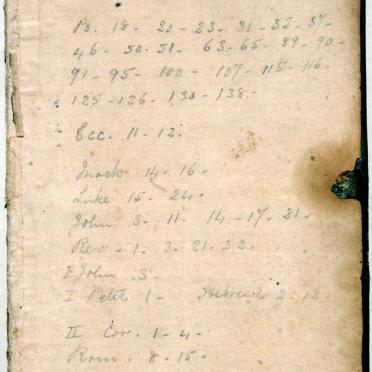 Ps. 18 - 20 - 23 - 31 - 32 - 37 -
46 - 50 - 51 - 63 - 65 - 89 - 90 -
91 - 95 - 100 - 107 - 115 - 116 -
125 - 126 - 130 - 138 -
Ecc. 11 - 12.
Mark 14 - 16 -
Luke 15 - 24 -
John 3 - 11 - 14 - 17 - 21 -
Rev - 1 - 3 - 21 - 22 -
I John 3 -
I Peter 1 - Hebrews 2 - 12 -
II Cor. 1 - 4 -
Rom. 8 - 15 -